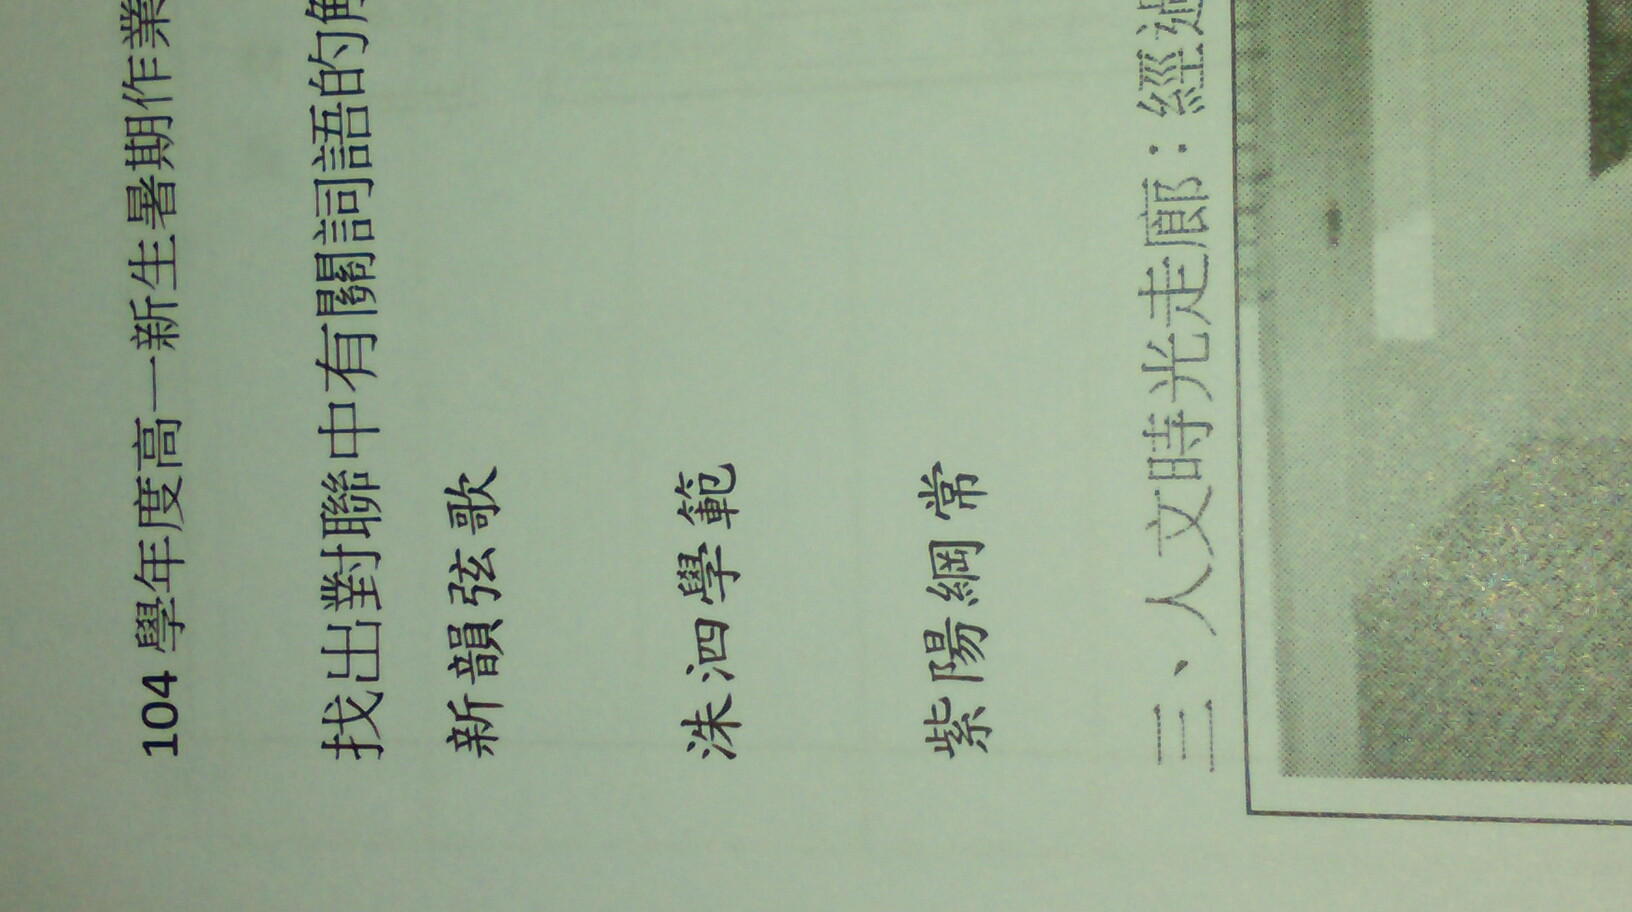 104 學年度高一新生暑期作業
找出對聯中有關詞語的
新韻弦歌
洙泗學範
紫陽綱常
三、人文時光走廊：經過